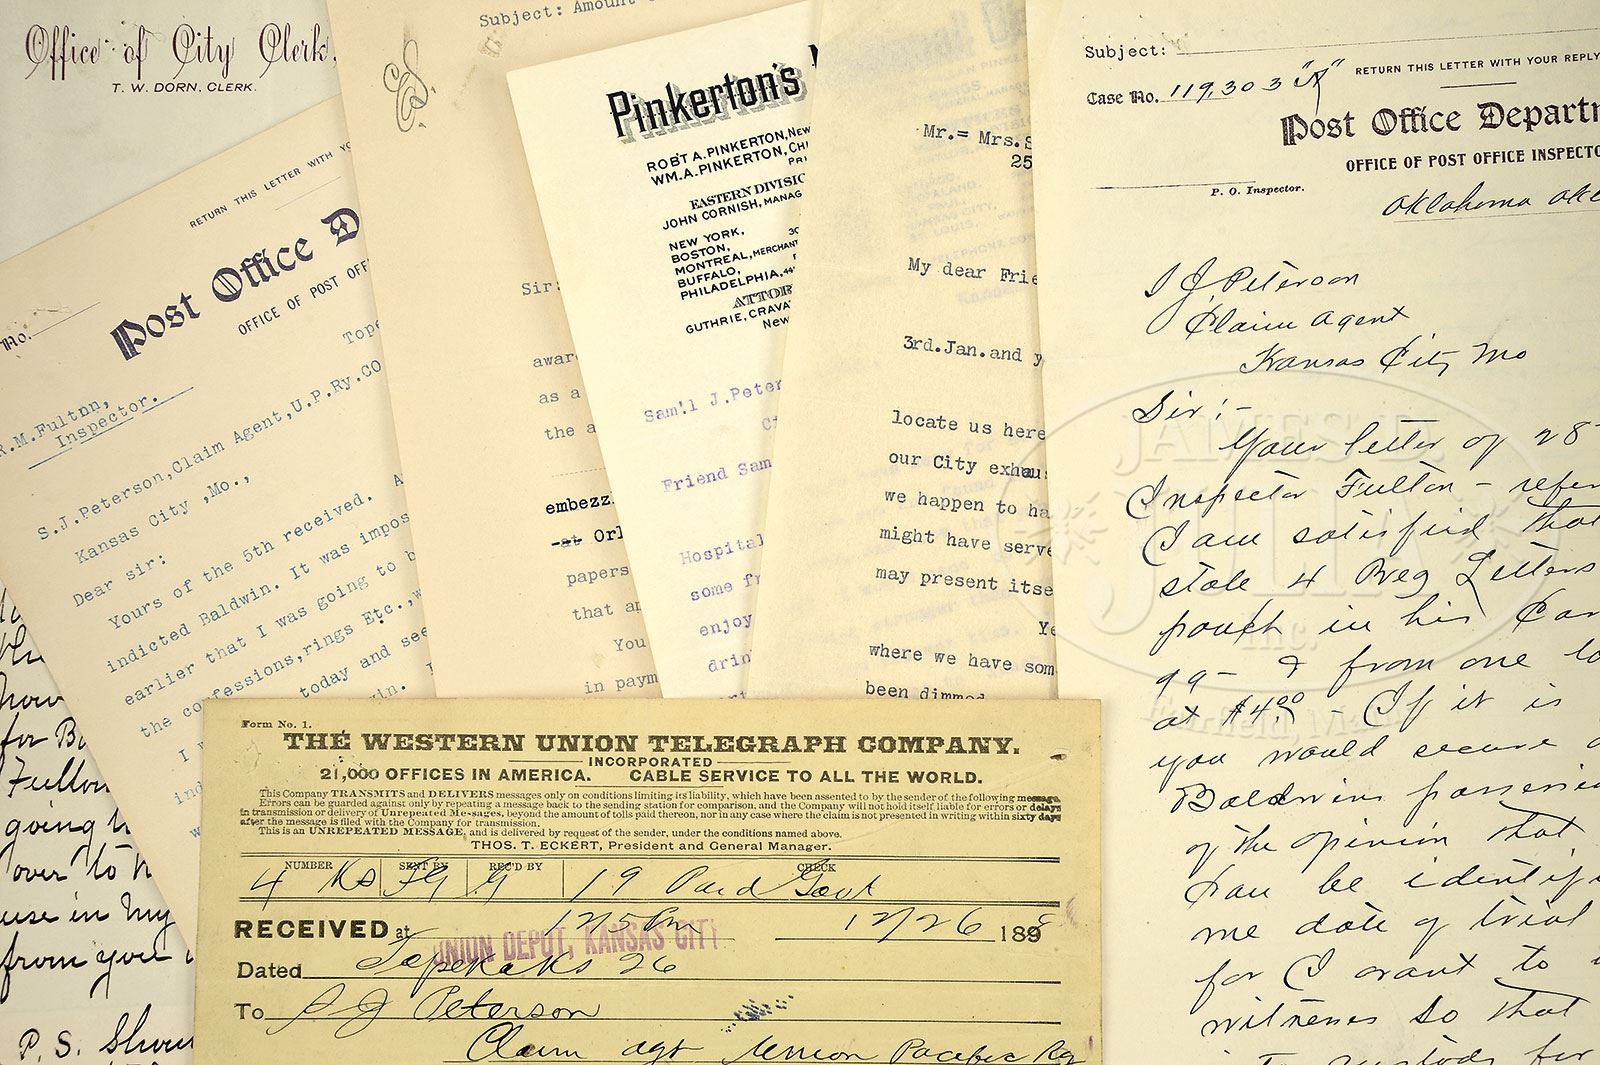 Office of City Clerk.
T. W. DORN, CLERK.
RETURN THIS LETTER WITH YO
No.
Post Office D
OFFICE OF POST OFF
Tope
R.M.Fultnn,
Inspector.
S.J.Peterson,Claim Agent,U.P.Ry.CO
Kansas City ,Mo.,
Dear sir:
Yours of the 5th received. A
indicted Baldwin. It was impos
earlier that I was going to b
fessions,rings Etc.,w
today and see
win.
I
ind
w
Subject: Amount
Sir:
awar
as a
the a
embezz
-at Orl
papers
that an
You
in paym
Pinkerton's
ROB'T A. PINKERTON, New
WM. A. PINKERTON, CHI
PRI
EASTERN DIVISIO
JOHN CORNISH, MANAG
NEW YORK,
BOSTON,
MONTREAL, MERCHANT
BUFFALO,
PHILADELPHIA, 44
ATTOR
GUTHRIE, CRAVA
New
Sam'l J.Peter
Friend Sam
Hospital
some fr
enjoy
drin
Mr.= Mrs.S
25
My dear Frie
3rd.Jan.and y
locate us here
our City exhaus
we happen to ha
might have serve
may present itse
Ye
where we have som
been dimmed
Subject:
RETURN THIS LETTER WITH YOUR REPLY
Case No. 119,303 "A"
Post Office Departm
OFFICE OF POST OFFICE INSPECTO
P. O. Inspector.
Oklahoma Okl
S J. Peterson
Claim Agent
Kansas City Mo
Sir:-
Your letter of 28
Inspector Fulton - refer
I am satisfied that
stole 4 Reg Letters
pouch in his Car
99 - & from one to
at $4.00 - If it is
you would secure a
Baldwins
of the opinion that
can be identifi
me date of trial
for I want to
witnesses so that
custody for
JAMES D.
JULIA
INC.
Fairfield, Maine
for Ba
Fulton
going t
over to
use in my
from you
P. S. Show
Form No. 1.
THE WESTERN UNION TELEGRAPH COMPANY.
INCORPORATED
21,000 OFFICES IN AMERICA. CABLE SERVICE TO ALL THE WORLD.
This Company TRANSMITS and DELIVERS messages only on conditions limiting its liability, which have been assented to by the sender of the following message.
Errors can be guarded against only by repeating a message back to the sending station for comparison, and the Company will not hold itself liable for errors or delays
in transmission or delivery of Unrepeated Messages, beyond the amount of tolls paid thereon, nor in any case where the claim is not presented in writing within sixty days
after the message is filed with the Company for transmission.
This is an UNREPEATED MESSAGE, and is delivered by request of the sender, under the conditions named above.
THOS. T. ECKERT, President and General Manager.
NUMBER SENT BY REC'D BY CHECK
4 Ks 19 Paid Govt
RECEIVED at 125 Pm 12/26 1898
UNION DEPOT, KANSAS CITY
Dated Topeka Ks 26
To S J Peterson
Claim agt Union Pacific Ry